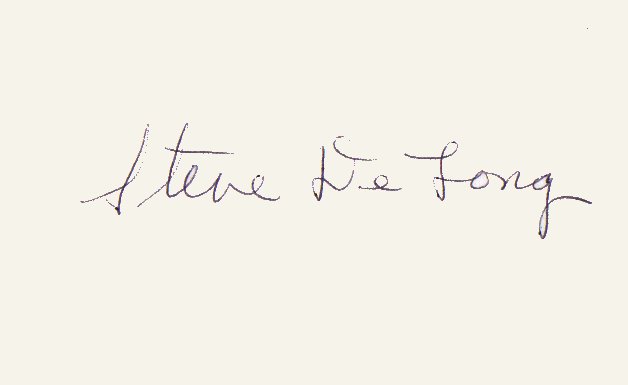 Steve De Long